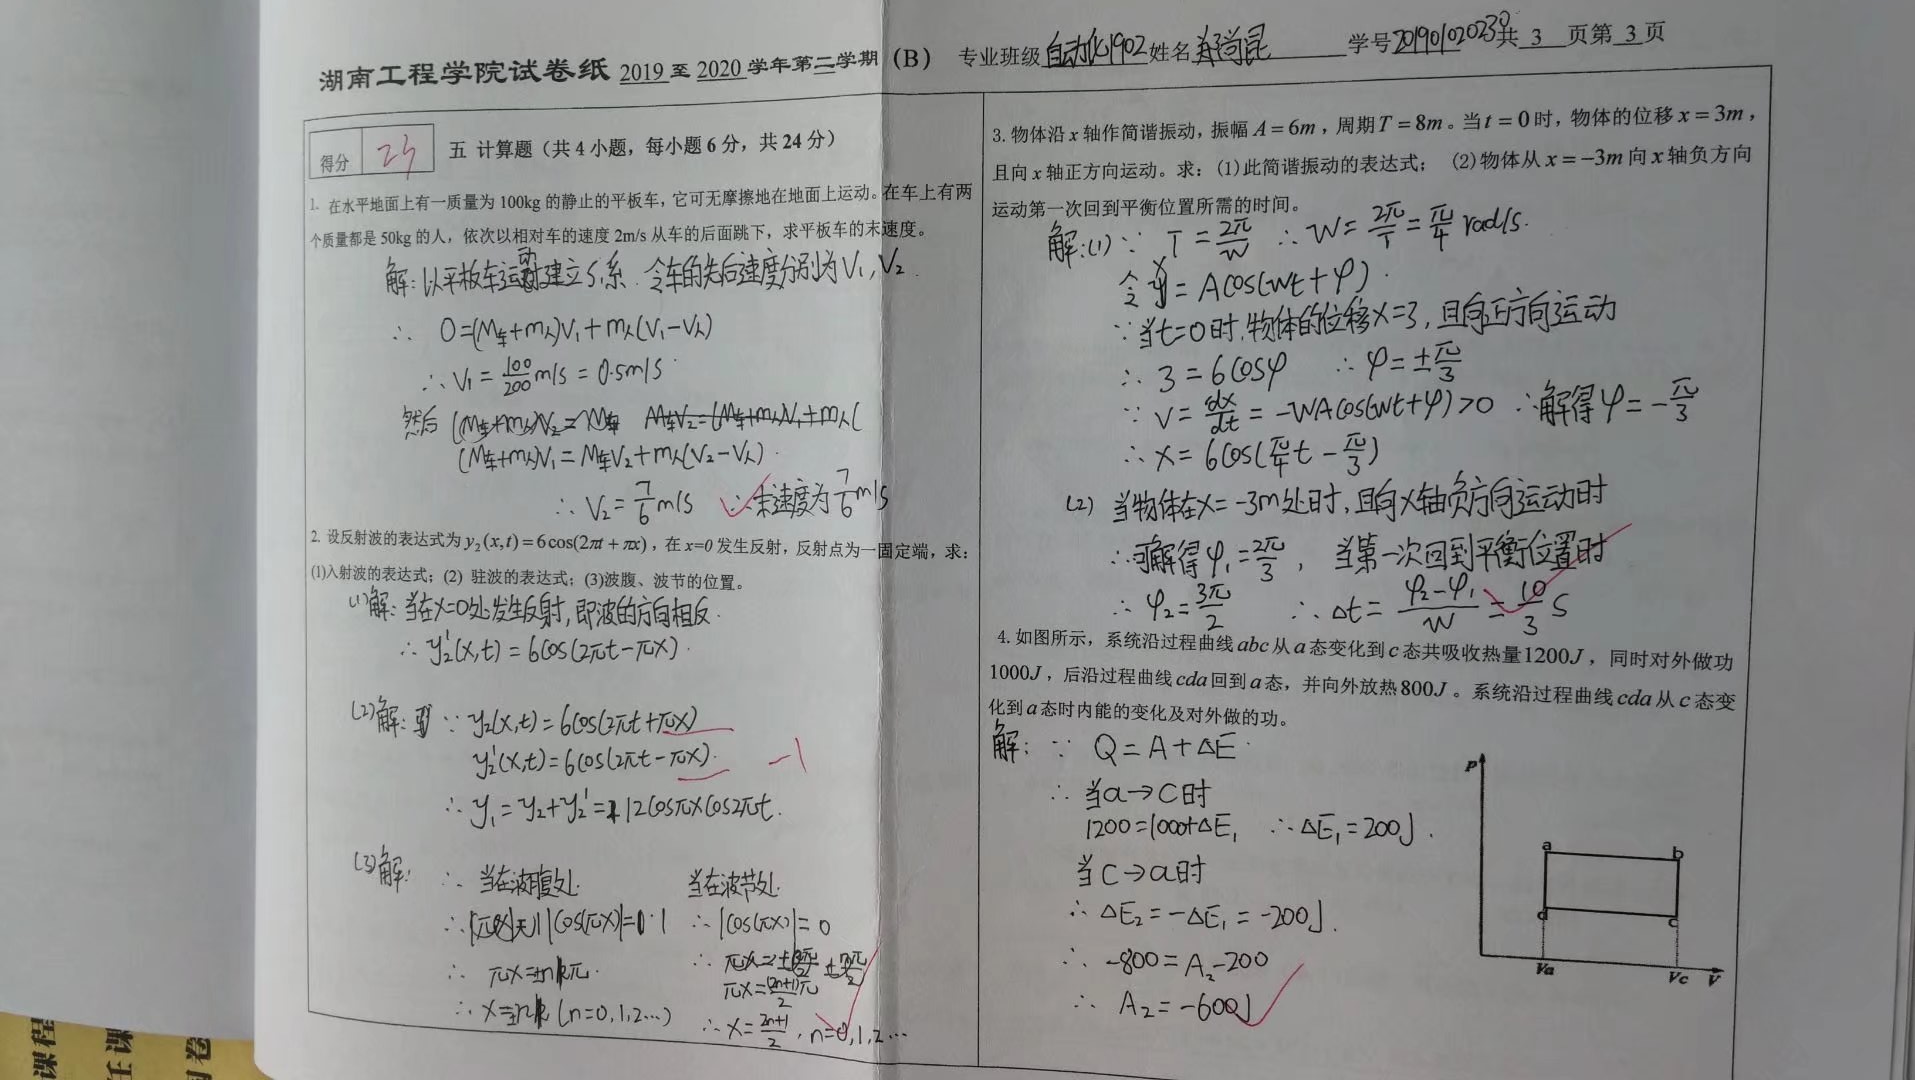 湖南工程学院试卷纸 2019 至 2020 学年第二学期（B） 专业班级自动化1902 姓名 郑尚昆 学号201901020230共 3 页第 3 页
得分 23 五 计算题（共 4 小题，每小题 6 分，共 24 分）
1. 在水平地面上有一质量为 100kg 的静止的平板车，它可无摩擦地在地面上运动。在车上有两
个质量都是 50kg 的人，依次以相对车的速度 2m/s 从车的后面跳下，求平板车的末速度。
解：以平板车运动建立S系．令车的先后速度分别为V₁，V₂．
∴ 0=(M车+m人)V₁+m人(V₁-V人)
∴V₁=100/200 m/s=0.5m/s
然后
(M车+m人)V₁=M车V₂+m人(V₂-V人)．
∴V₂=7/6 m/s ∴末速度为7/6 m/s
2. 设反射波的表达式为y₂(x,t)=6cos(2πt+πx)，在 x=0 发生反射，反射点为一固定端，求：
(1)入射波的表达式；(2) 驻波的表达式；(3)波腹、波节的位置。
(1)解：当在X=0处发生反射，即波的方向相反．
∴y₂'(x,t)=6cos(2πt-πx)．
(2)解： ∵y₂(x,t)=6cos(2πt+πx)
y₂'(x,t)=6cos(2πt-πx)． -1
∴y₁=y₂+y₂'=12cosπxcos2πt．
(3)解： ∴当在波腹处． 当在波节处．
|cos(πx)|=1 ∴|cos(πx)|=0
∴ πx=±nπ．
πx=(2n+1)π/2
∴x=±n (n=0,1,2…) ∴x=2n+1/2，n=0,1,2…
3. 物体沿 x 轴作简谐振动，振幅 A=6m，周期T=8m。当t=0时，物体的位移 x=3m，
且向 x 轴正方向运动。求：(1)此简谐振动的表达式； (2)物体从 x=-3m 向 x 轴负方向
运动第一次回到平衡位置所需的时间。
解:(1) ∵ T=2π/W ∴W=2π/T=π/4 rad/s．
令x=Acos(wt+φ)．
∵当t=0时，物体的位移X=3，且向正方向运动
∴3=6cosφ ∴φ=±π/3
∵V=dx/dt=-WAcos(wt+φ)>0 ∴解得φ=-π/3
∴x=6cos(π/4t-π/3)
(2) 当物体在X=-3m处时，且向X轴负方向运动时
∴可解得φ₁=2π/3， 当第一次回到平衡位置时
∴φ₂=3π/2 ∴Δt=φ₂-φ₁/W=10/3 S
4. 如图所示，系统沿过程曲线 abc 从 a 态变化到 c 态共吸收热量1200J，同时对外做功
1000J，后沿过程曲线 cda 回到 a 态，并向外放热 800J。系统沿过程曲线 cda 从 c 态变
化到 a 态时内能的变化及对外做的功。
解： ∵ Q=A+ΔE．
∴当a→c时
1200=1000+ΔE₁ ∴ΔE₁=200J．
当c→a时
∴ΔE₂=-ΔE₁=-200J．
∴-800=A₂-200
∴A₂=-600J
P
a b
d c
Va Vc V
课程
任课